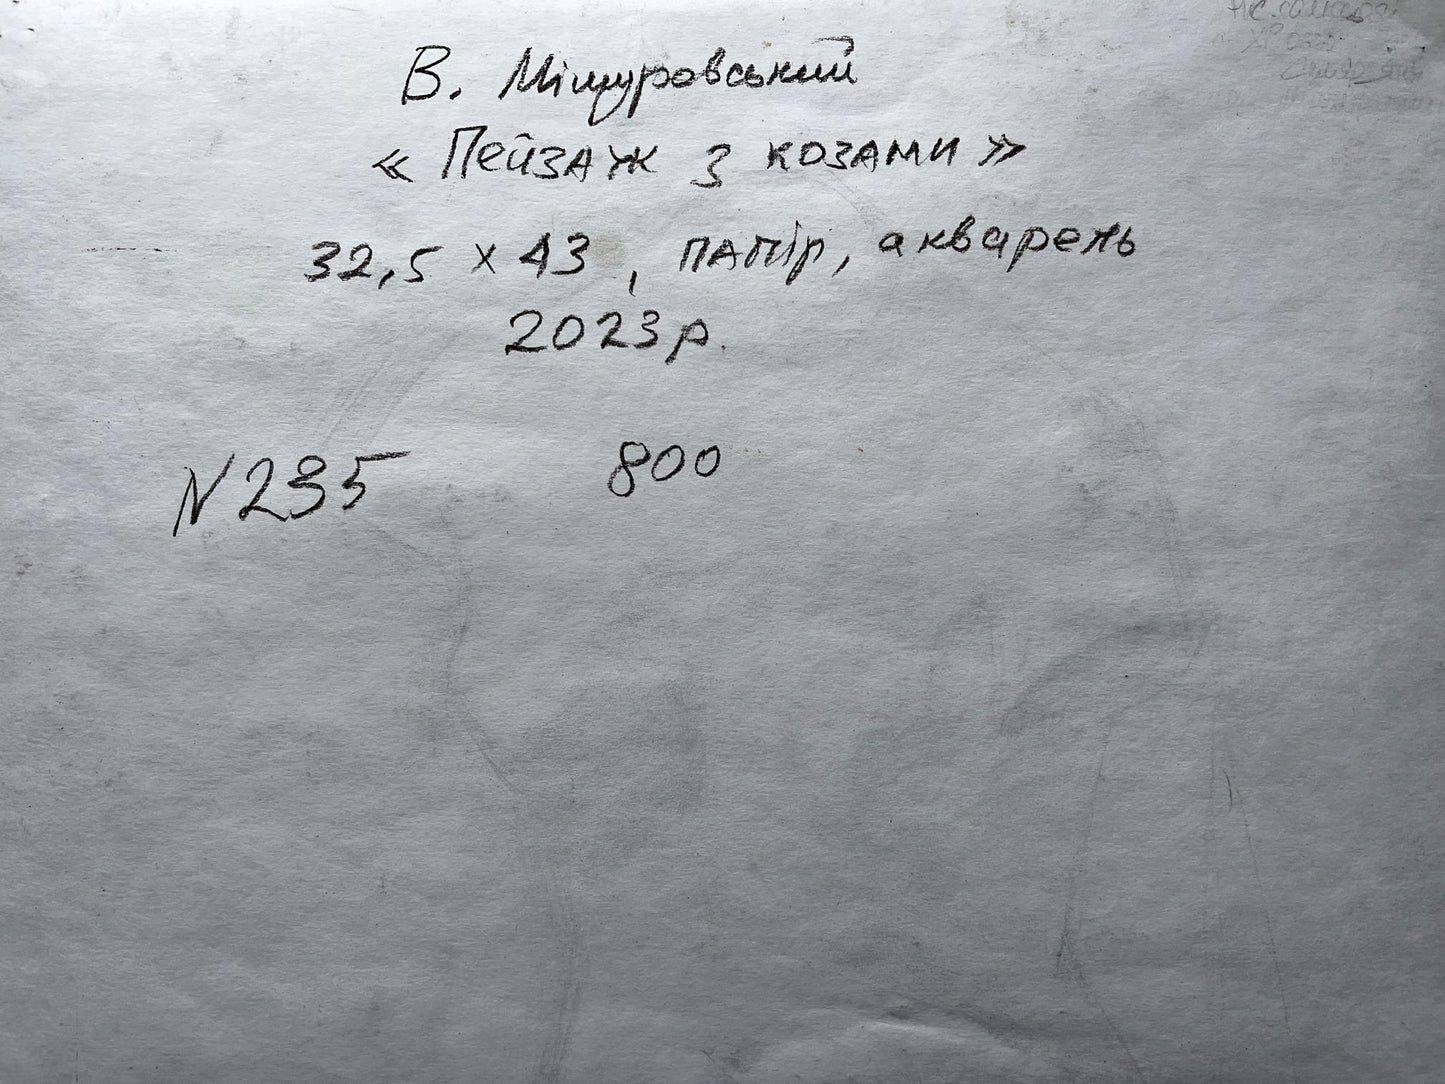 В. Міщуровський
« Пейзаж з козами »
32,5 x 43, папір, акварель
2023 р.
N 235 800